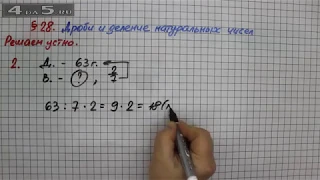 §28. Дроби и деление натуральных чисел
Решаем устно.
2. Д. - 63 г.
В. - ? , 2/7
63 : 7 · 2 = 9 · 2 = 18 (г